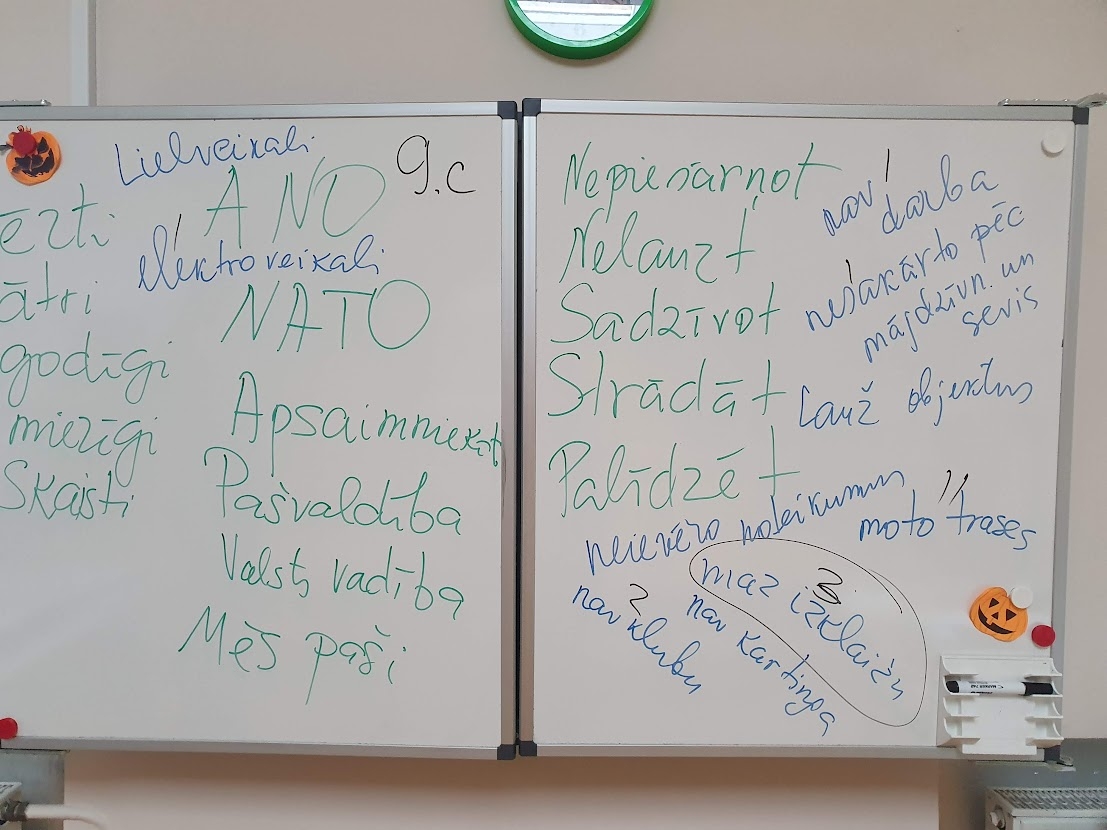 Lielveikali
ANO
9.c
elektroveikali
NATO
ēzti
ātri
godīgi
mierīgi
Skaisti
Apsaimniekot
Pašvaldība
Valsts vadība
Mēs paši
Nepiesārņot
Nelauzt
Sadzīvot
Strādāt
Palīdzēt
nav darba
nesakārto pēc
mājdzīvn. un
sevis
Lauž objektus
neievēro noteikumus
moto trases
maz izklaižu
3
nav kartinga
2
nav klubu